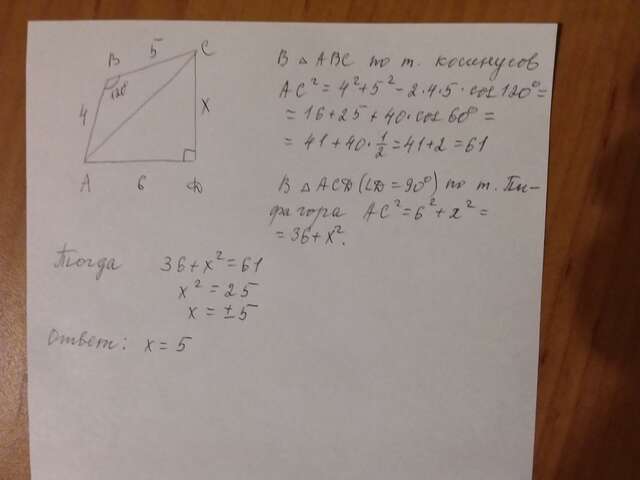 B
5
C
120°
4
x
A
6
D
В △ ABC по т. косинусов
AC² = 4² + 5² - 2·4·5·cos 120° =
= 16 + 25 + 40·cos 60° =
= 41 + 40·1/2 = 41 + 2 = 61
В △ ACD (∠D = 90°) по т. Пи-
фагора AC² = 6² + x² =
= 36 + x².
Тогда 36 + x² = 61
x² = 25
x = ±5
Ответ: x = 5